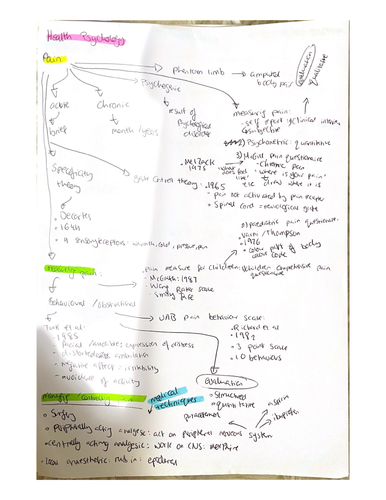 Health Psychology
Pain
phantom limb → amputed body part
evaluation
qualitative
Psychogenic
acute
Chronic
result of psychological disorder
brief
month / years
measuring pain:
- self report / clinical interview
subjective
Psychometric: quantitative
McGill pain questionnaire
- Chronic pain
. Melzack 1975
- "where is your pain"
Specificity theory
Gate Control theory:
. 1965
- pain not activated by pain receptor
- Spinal cord = neurological gate
Descartes
16th
4 sensory receptors: warmth, cold, pressure, pain
paediatric pain questionnaire
Varni / Thompson
1976
colour part of body
colour code
measuring pain:
. Pain measure for children:
Children comprehensive pain questionnaire
McGrath: 1987
Wong Baker scale
Smily face
Behavioural / observational
UAB pain behaviour scale:
. Richard et al
- 1982
- 3 point scale
- 10 behaviours
Turk et al
- 1985
facial / audible: expression of distress
- distorted ambulation
- negative affect: irritability
- avoidance of activity
evaluation
structured
quantitative
managing / controlling pain
medical techniques
aspirin
paracetamol
ibuprofen
Surgery
Peripherally acting analgesic: act on peripheral nervous system
centrally acting analgesic: work on CNS: morphine
local anaesthetic: rub in: epidural